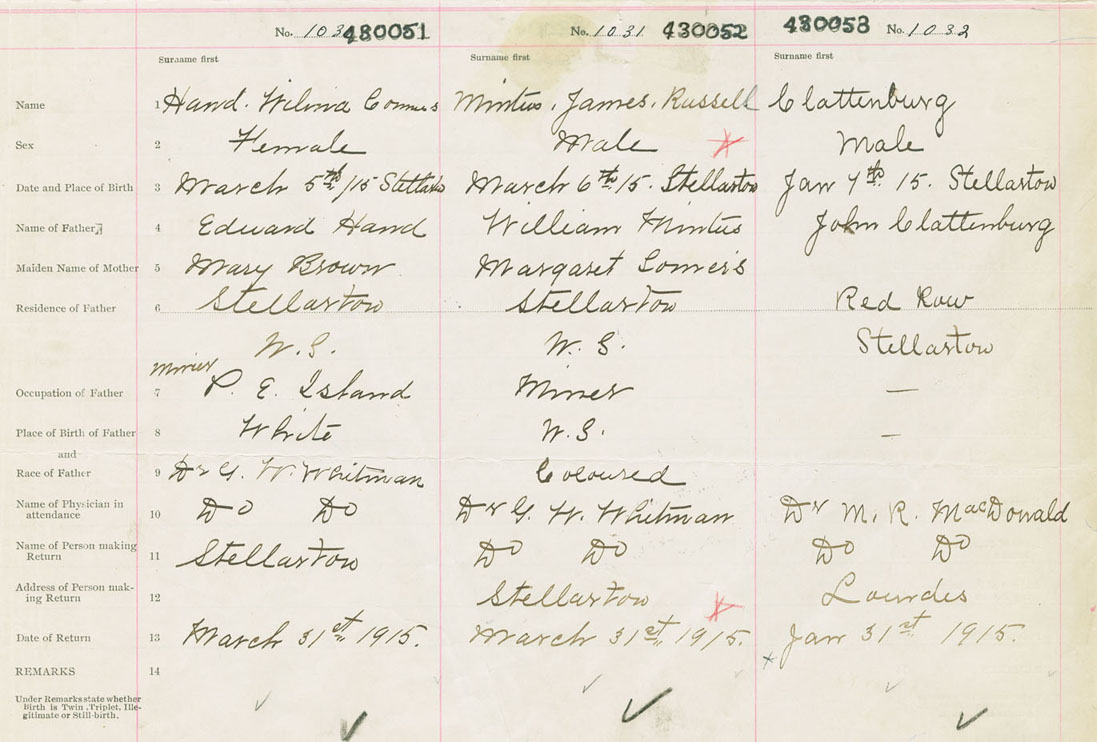 No. 103 430051 No. 1031 430052 430053 No. 1032
Surname first Surname first Surname first
Name 1 Hand. Wilma Mintus, James, Russell Clattenburg
Sex 2 Female Male Male
Date and Place of Birth 3 March 5th/15 March 6th 15. Stellarton Jan 7th 15. Stellarton
Name of Father 4 Edward Hand William Mintus John Clattenburg
Maiden Name of Mother 5 Mary Brown Margaret Somers
Residence of Father 6 Stellarton Stellarton Red Row
N.S. N.S. Stellarton
Miner
Occupation of Father 7 P. E. Island Miner —
Place of Birth of Father 8 White N.S. —
and
Race of Father 9 Dr G. W. Whitman Coloured
Name of Physician in
attendance 10 Do Do Dr G. W. Whitman Dr M. R. MacDonald
Name of Person making
Return 11 Stellarton Do Do Do Do
Address of Person mak-
ing Return 12 Stellarton Lourdes
Date of Return 13 March 31st 1915. March 31st 1915. Jan 31st 1915.
REMARKS 14
Under Remarks state whether
Birth is Twin, Triplet, Ille-
gitimate or Still-birth.